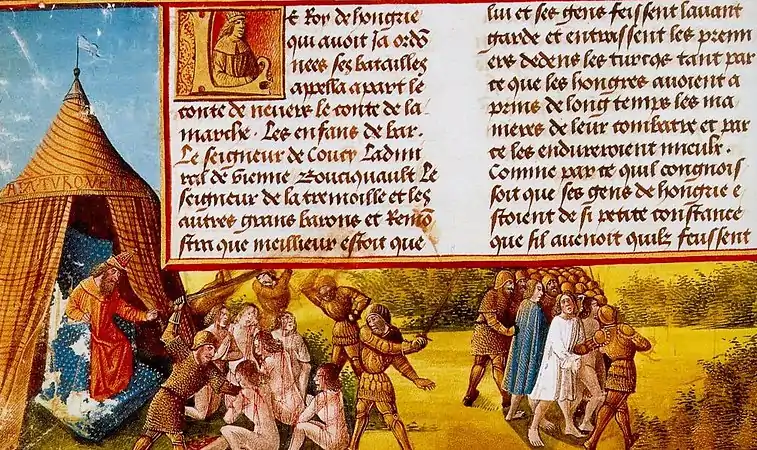 Le Roy de hongrie
qui avoit ja ordō
nees ses batailles
apella a part le
conte de nevers le conte de la
marche. Les enfans de bar.
Le seigneur de Coucy Ladmi
ral de vienne Bouciquault Le
seigneur de la tremoille et les
autres grans barons et Remō
stra que meillieur estoit que
lui et ses gens feissent lavant
garde et entrassent les premi
ers dedens les turcqs tant par
ce que les hongres avoient a
prins de long temps les ma
nieres de leur combatre et par
ce les endureroient mieulx.
Comme par ce quil congnois
soit que ses gens de hongrie e
stoient de si petite constance
que sil avenoit quilz feussent